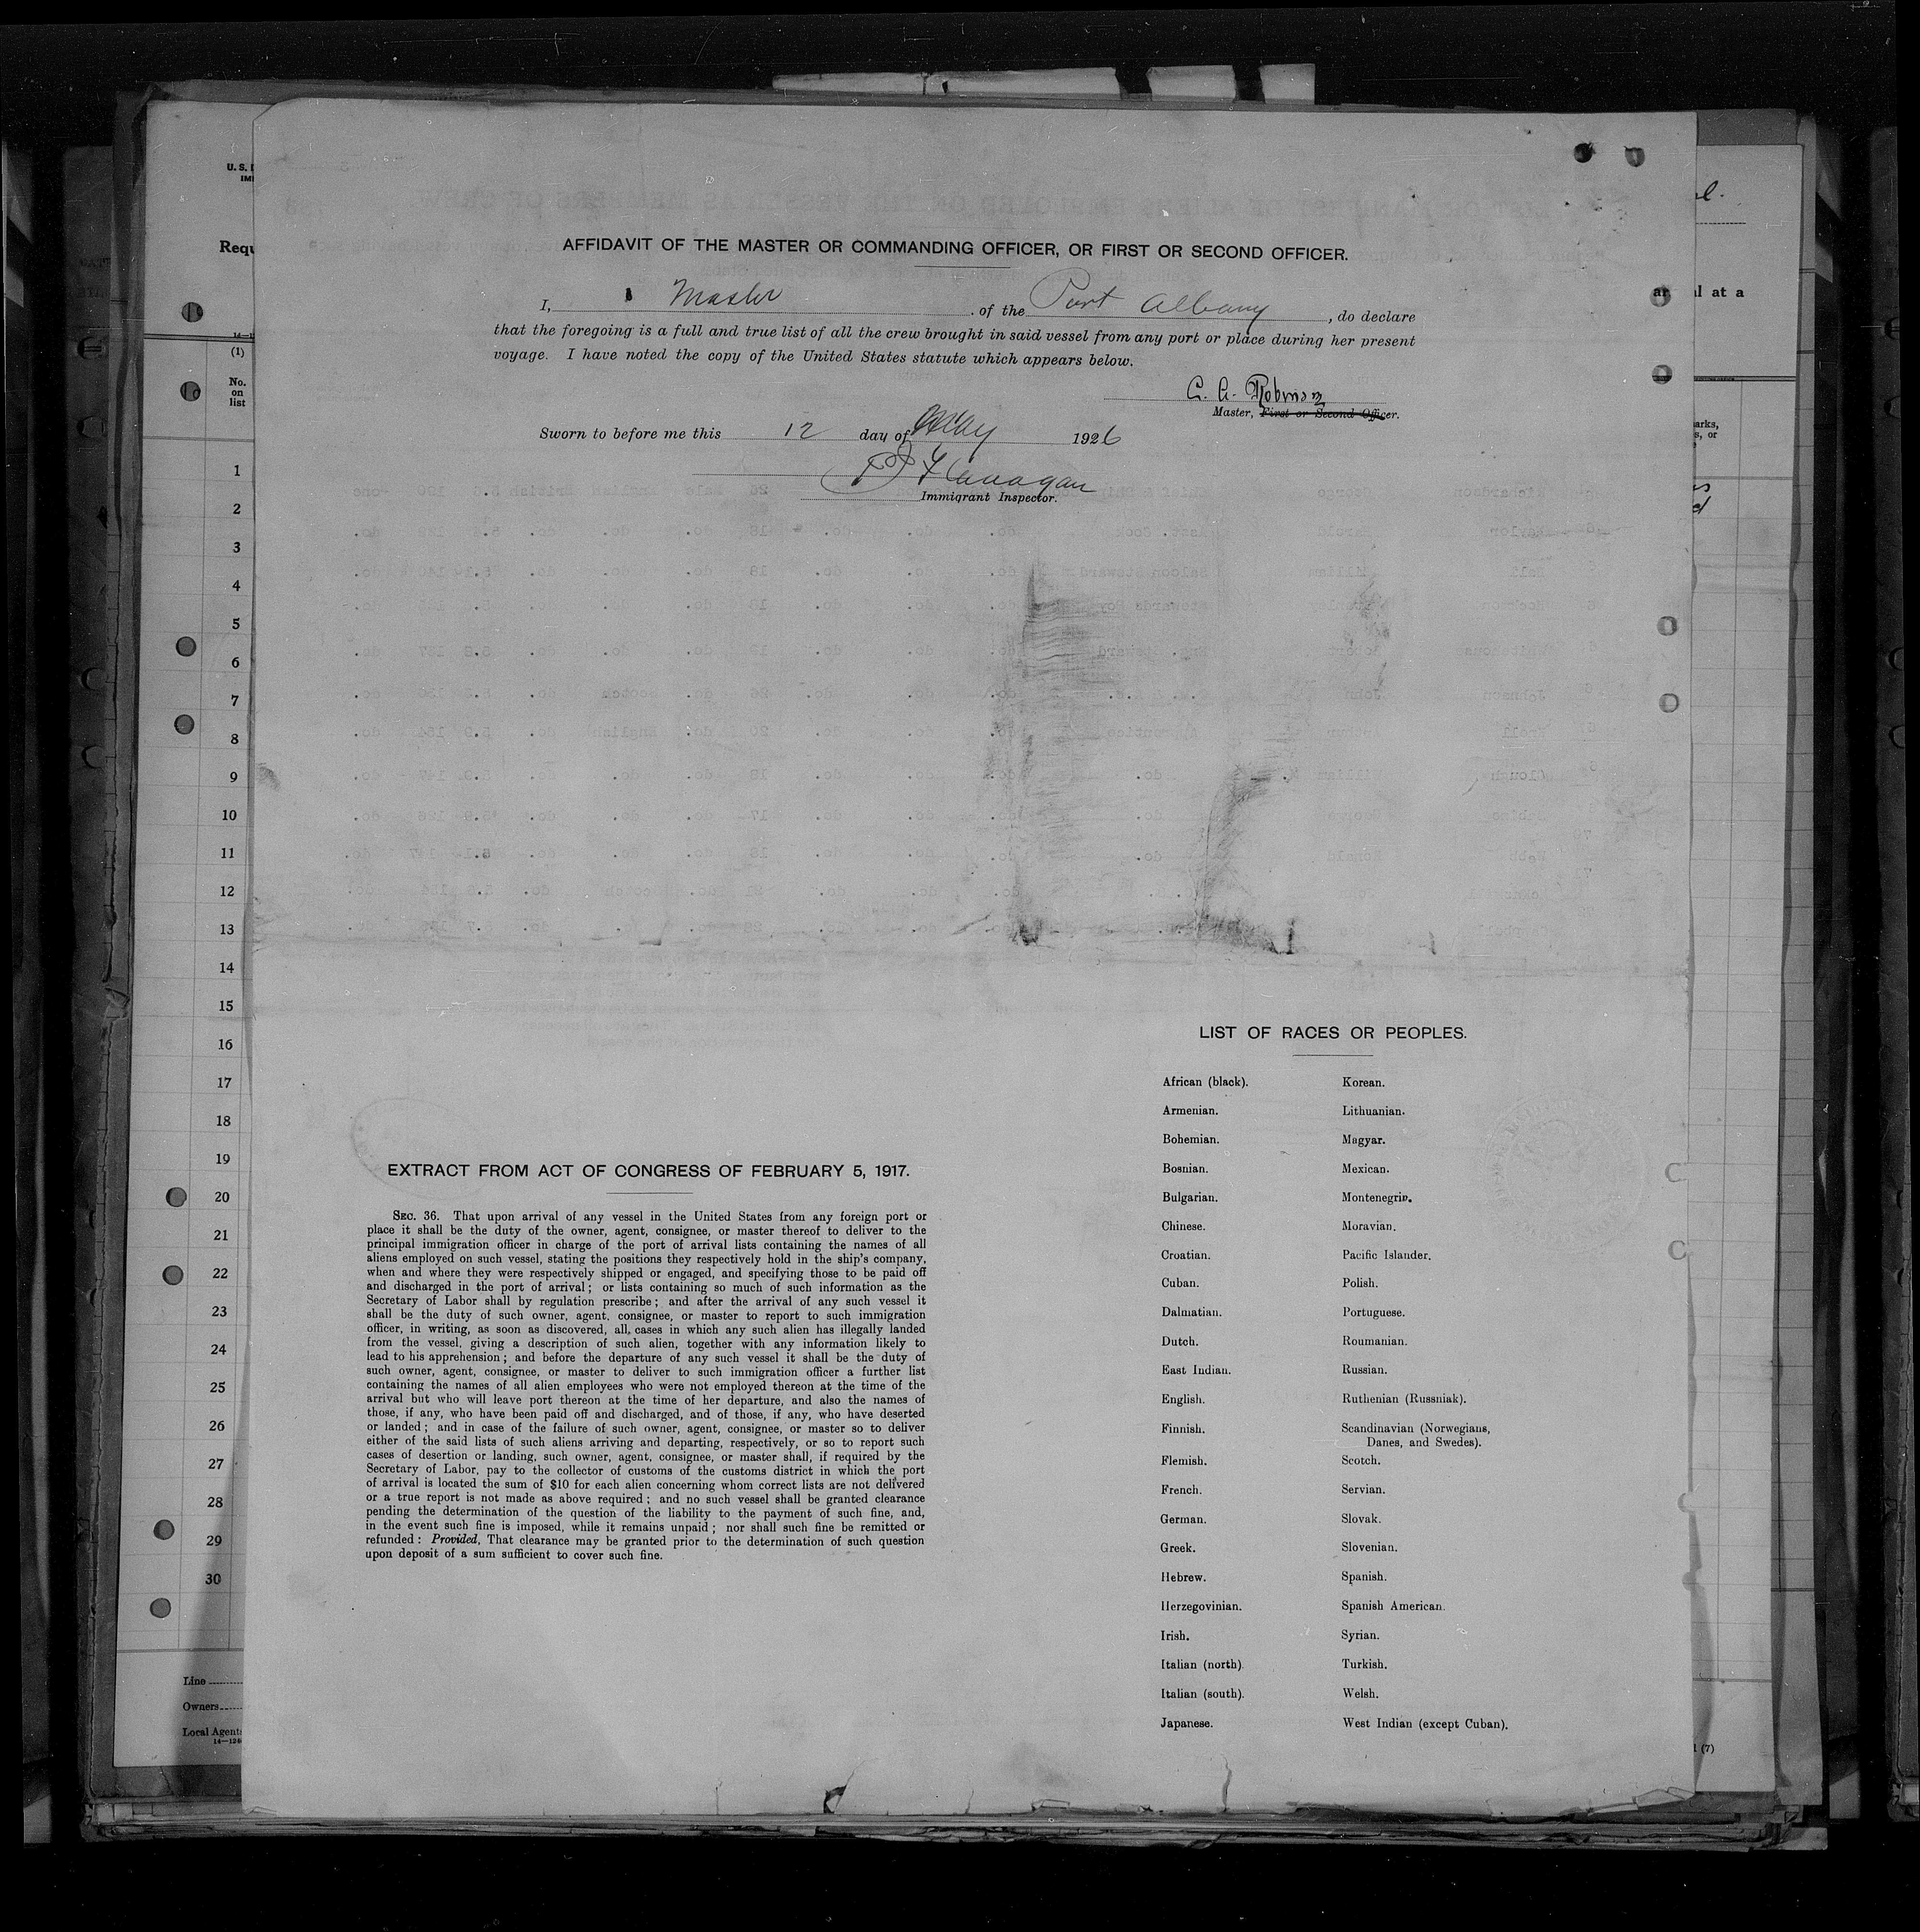 U. S. 
IMI
Requ
(1)
No.
on
list
1
2
3
4
5
6
7
8
9
10
11
12
13
14
15
16
17
18
19
20
21
22
23
24
25
26
27
28
29
30
Line
Owners
Local Agents
AFFIDAVIT OF THE MASTER OR COMMANDING OFFICER, OR FIRST OR SECOND OFFICER.
I, Master of the Port Albany, do declare
that the foregoing is a full and true list of all the crew brought in said vessel from any port or place during her present
voyage. I have noted the copy of the United States statute which appears below.
Master, First or Second Officer.
Sworn to before me this 12 day of May 1926
Flanagan
Immigrant Inspector.
EXTRACT FROM ACT OF CONGRESS OF FEBRUARY 5, 1917.
SEC. 36. That upon arrival of any vessel in the United States from any foreign port or
place it shall be the duty of the owner, agent, consignee, or master thereof to deliver to the
principal immigration officer in charge of the port of arrival lists containing the names of all
aliens employed on such vessel, stating the positions they respectively hold in the ship's company,
when and where they were respectively shipped or engaged, and specifying those to be paid off
and discharged in the port of arrival; or lists containing so much of such information as the
Secretary of Labor shall by regulation prescribe; and after the arrival of any such vessel it
shall be the duty of such owner, agent, consignee, or master to report to such immigration
officer, in writing, as soon as discovered, all cases in which any such alien has illegally landed
from the vessel, giving a description of such alien, together with any information likely to
lead to his apprehension; and before the departure of any such vessel it shall be the duty of
such owner, agent, consignee, or master to deliver to such immigration officer a further list
containing the names of all alien employees who were not employed thereon at the time of the
arrival but who will leave port thereon at the time of her departure, and also the names of
those, if any, who have been paid off and discharged, and of those, if any, who have deserted
or landed; and in case of the failure of such owner, agent, consignee, or master so to deliver
either of the said lists of such aliens arriving and departing, respectively, or so to report such
cases of desertion or landing, such owner, agent, consignee, or master shall, if required by the
Secretary of Labor, pay to the collector of customs of the customs district in which the port
of arrival is located the sum of $10 for each alien concerning whom correct lists are not delivered
or a true report is not made as above required; and no such vessel shall be granted clearance
pending the determination of the question of the liability to the payment of such fine, and,
in the event such fine is imposed, while it remains unpaid; nor shall such fine be remitted or
refunded: Provided, That clearance may be granted prior to the determination of such question
upon deposit of a sum sufficient to cover such fine.
LIST OF RACES OR PEOPLES.
African (black).
Armenian.
Bohemian.
Bosnian.
Bulgarian.
Chinese.
Croatian.
Cuban.
Dalmatian.
Dutch.
East Indian.
English.
Finnish.
Flemish.
French.
German.
Greek.
Hebrew.
Herzegovinian.
Irish.
Italian (north).
Italian (south).
Japanese.
Korean.
Lithuanian.
Magyar.
Mexican.
Montenegrin.
Moravian.
Pacific Islander.
Polish.
Portuguese.
Roumanian.
Russian.
Ruthenian (Russniak).
Scandinavian (Norwegians,
Danes, and Swedes).
Scotch.
Servian.
Slovak.
Slovenian.
Spanish.
Spanish American.
Syrian.
Turkish.
Welsh.
West Indian (except Cuban).
l at a
arks,
s, or
(7)